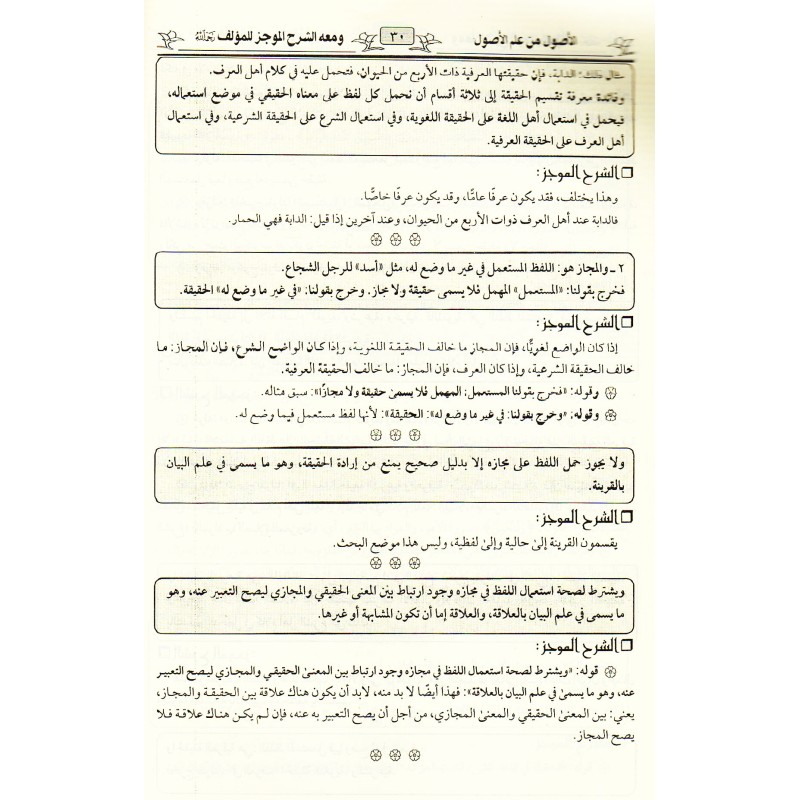 الأصول من علم الأصول ٣٠ ومعه الشرح الموجز للمؤلف رحمه الله
مثال ذلك: الدابة، فإن حقيقتها العرفية ذات الأربع من الحيوان، فتحمل عليه في كلام أهل العرف.
وفائدة معرفة تقسيم الحقيقة إلى ثلاثة أقسام أن نحمل كل لفظ على معناه الحقيقي في موضع استعماله،
فيحمل في استعمال أهل اللغة على الحقيقة اللغوية، وفي استعمال الشرع على الحقيقة الشرعية، وفي استعمال
أهل العرف على الحقيقة العرفية.
الشرح الموجز:
وهذا يختلف، فقد يكون عرفًا عامًّا، وقد يكون عرفًا خاصًّا.
فالدابة عند أهل العرف ذوات الأربع من الحيوان، وعند آخرين إذا قيل: الدابة فهي الحمار.
٢ ـ والمجاز هو: اللفظ المستعمل في غير ما وضع له، مثل «أسد» للرجل الشجاع.
فخرج بقولنا: «المستعمل» المهمل فلا يسمى حقيقة ولا مجاز. وخرج بقولنا: «في غير ما وضع له» الحقيقة.
الشرح الموجز:
إذا كان الواضع لغويًّا، فإن المجاز ما خالف الحقيقة اللغوية، وإذا كان الواضع الشرع، فإن المجاز: ما
خالف الحقيقة الشرعية، وإذا كان العرف، فإن المجاز: ما خالف الحقيقة العرفية.
وقوله: «فخرج بقولنا المستعمل: المهمل فلا يسمىٰ حقيقة ولا مجازًا»: سبق مثاله.
وقوله: «وخرج بقولنا: في غير ما وضع له»: الحقيقة»: لأنها لفظ مستعمل فيما وضع له.
ولا يجوز حمل اللفظ على مجازه إلا بدليل صحيح يمنع من إرادة الحقيقة، وهو ما يسمى في علم البيان
بالقرينة.
الشرح الموجز:
يقسمون القرينة إلىٰ حالية وإلىٰ لفظية، وليس هذا موضع البحث.
ويشترط لصحة استعمال اللفظ في مجازه وجود ارتباط بين المعنى الحقيقي والمجازي ليصح التعبير عنه، وهو
ما يسمى في علم البيان بالعلاقة، والعلاقة إما أن تكون المشابهة أو غيرها.
الشرح الموجز:
قوله: «ويشترط لصحة استعمال اللفظ في مجازه وجود ارتباط بين المعنىٰ الحقيقي والمجازي ليصح التعبير
عنه، وهو ما يسمىٰ في علم البيان بالعلاقة»: فهذا أيضًا لا بد منه، لابد أن يكون هناك علاقة بين الحقيقة والمجاز،
يعني: بين المعنىٰ الحقيقي والمعنىٰ المجازي، من أجل أن يصح التعبير به عنه، فإن لم يكن هناك علاقة فلا
يصح المجاز.